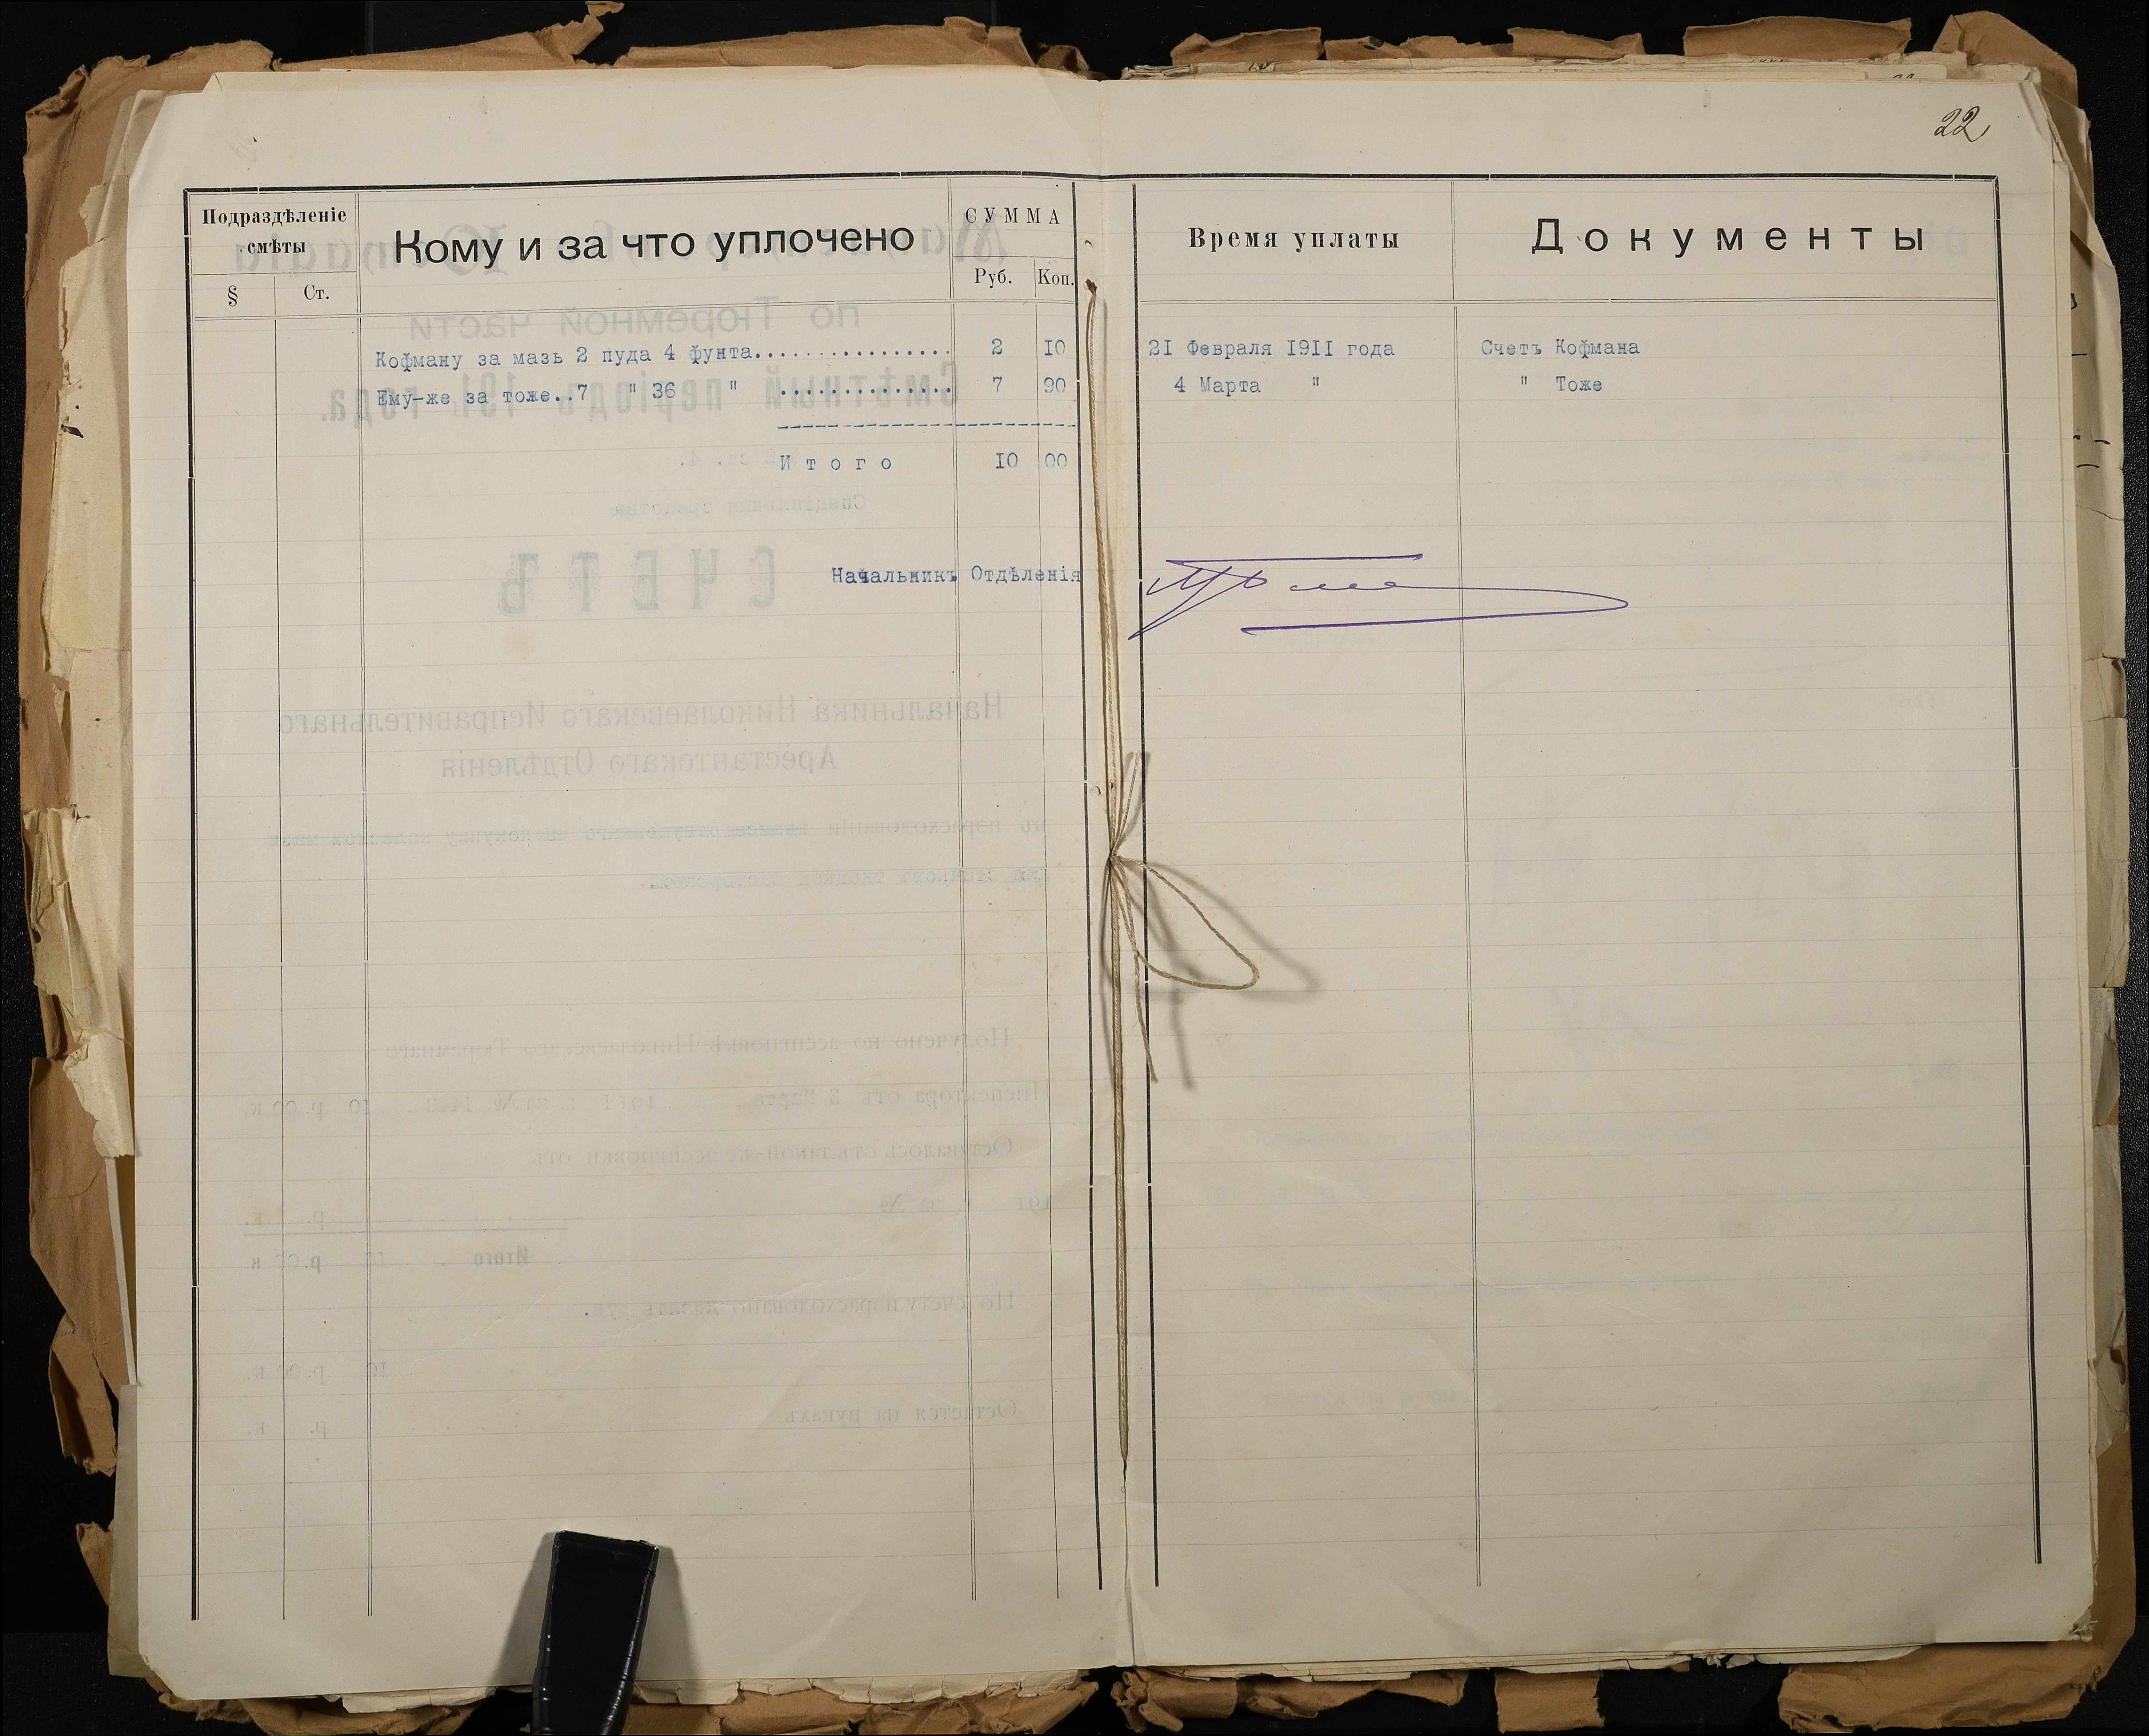 22
Подраздѣленіе
смѣты
§ Ст.
Кому и за что уплочено
СУММА
Руб. Коп.
Время уплаты
Документы
Кофману за мазь 2 пуда 4 фунта................ 2 10 21 Февраля 1911 года Счетъ Кофмана
Ему-же за тоже..7 " 36 " .............. 7 90 4 Марта " " Тоже
Итого 10 00
Начальникъ Отдѣленія